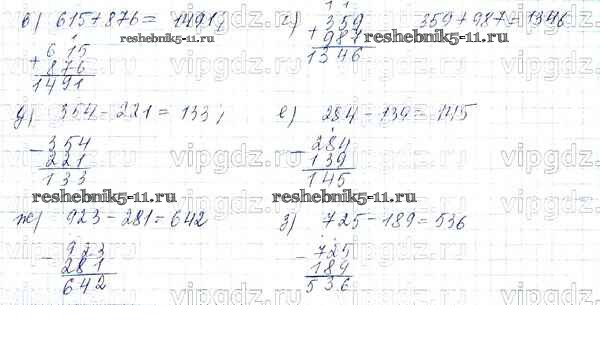 в) 615+876 = 1491;
1
615
+
876
1491
г)
1 1
359
+
987
1346
359+987=1346
reshebnik5-11.ru
reshebnik5-11.ru
д) 354-221 = 133;
-354
221
133
е) 284-139=145
-284
139
145
vipgdz.ru
reshebnik5-11.ru
reshebnik5-11.ru
ж) 923-281=642
-923
281
642
з) 725-189=536
-725
189
536
vipgdz.ru
vipgdz.ru